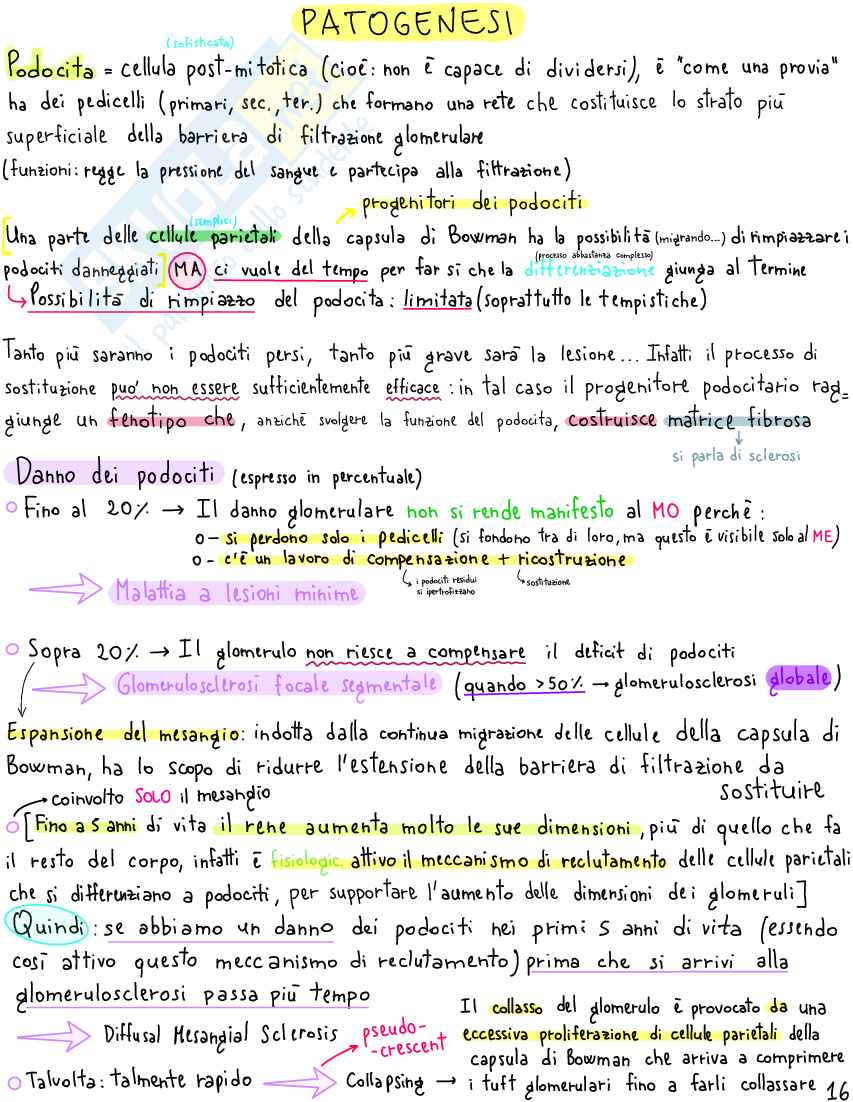 PATOGENESI
(sofisticata)
Podocita = cellula post-mitotica (cioè: non è capace di dividersi), è "come una provia"
ha dei pedicelli (primari, sec., ter.) che formano una rete che costituisce lo strato più
superficiale della barriera di filtrazione glomerulare
(funzioni: regge la pressione del sangue e partecipa alla filtrazione)
progenitori dei podociti
(semplici)
[Una parte delle cellule parietali della capsula di Bowman ha la possibilità (migrando...) di rimpiazzare i
(processo abbastanza complesso)
podociti danneggiati] MA ci vuole del tempo per far sì che la differenziazione giunga al Termine
↳ Possibilità di rimpiazzo del podocita: limitata (soprattutto le tempistiche)
Tanto più saranno i podociti persi, tanto più grave sarà la lesione... Infatti il processo di
sostituzione puo' non essere sufficientemente efficace: in tal caso il progenitore podocitario rag=
giunge un fenotipo che, anziché svolgere la funzione del podocita, costruisce matrice fibrosa
↓
si parla di sclerosi
Danno dei podociti (espresso in percentuale)
○ Fino al 20% → Il danno glomerulare non si rende manifesto al MO perchè:
o- si perdono solo i pedicelli (si fondono tra di loro, ma questo è visibile solo al ME)
o- c'è un lavoro di compensazione + ricostruzione
↳ i podociti residui si ipertrofizzano ↳ sostituzione
⇒ Malattia a lesioni minime
○ Sopra 20% → Il glomerulo non riesce a compensare il deficit di podociti
⇒ Glomerulosclerosi focale segmentale (quando >50% → glomerulosclerosi globale)
Espansione del mesangio: indotta dalla continua migrazione delle cellule della capsula di
Bowman, ha lo scopo di ridurre l'estensione della barriera di filtrazione da
sostituire
→ coinvolto SOLO il mesangio
○ [Fino a 5 anni di vita il rene aumenta molto le sue dimensioni, più di quello che fa
il resto del corpo, infatti è fisiologic. attivo il meccanismo di reclutamento delle cellule parietali
che si differenziano a podociti, per supportare l'aumento delle dimensioni dei glomeruli]
Quindi: se abbiamo un danno dei podociti nei primi 5 anni di vita (essendo
così attivo questo meccanismo di reclutamento) prima che si arrivi alla
glomerulosclerosi passa più tempo
⇒ Diffusal Mesangial Sclerosis
pseudo-
-crescent
○ Talvolta: talmente rapido ⇒ Collapsing →
Il collasso del glomerulo è provocato da una
eccessiva proliferazione di cellule parietali della
capsula di Bowman che arriva a comprimere
i tuft glomerulari fino a farli collassare
16